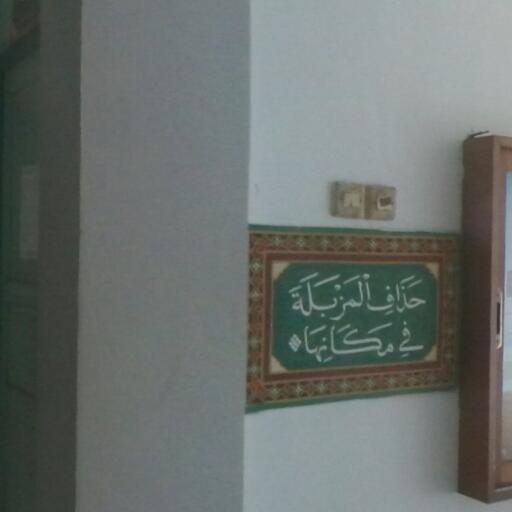 حَذَافِ الْمَزْبَلَةَ
فِي مَكَانِهَا